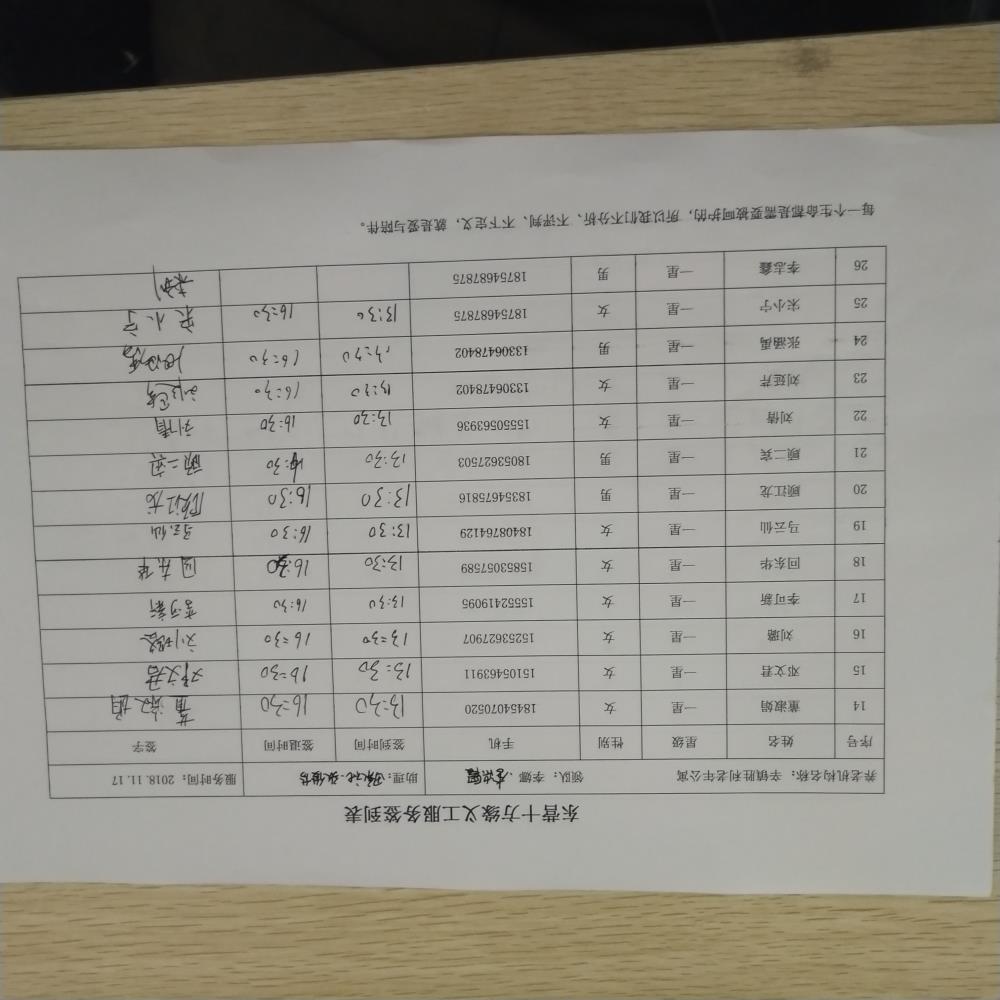 东营十方缘义工服务签到表
养老机构名称：辛镇胜利老年公寓 领队：李娜 助理： 服务时间：2018.11.17
序号 姓名 星级 性别 手机 签到时间 签退时间 签字
14 董淑娟 一星 女 18454070520 13:30 16:30 董淑娟
15 邓文君 一星 女 15105463911 13:30 16:30 邓文君
16 刘璐 一星 女 15253627907 13:30 16:30 刘璐
17 李可新 一星 女 15552419095 13:30 16:30 李可新
18 回东华 一星 女 15883057589 13:30 16:30 回东华
19 马云仙 一星 女 18408764129 13:30 16:30 马云仙
20 顾江龙 一星 男 18354675816 13:30 16:30 顾江龙
21 顾二宾 一星 男 18053627503 13:30 16:30 顾二宾
22 刘倩 一星 女 15550563936 13:30 16:30 刘倩
23 刘延芹 一星 女 13306478402 13:30 16:30 刘延芹
24 张涵禹 一星 男 13306478402 13:30 16:30 张涵禹
25 宋小宁 一星 女 18754687875 13:30 16:30 宋小宁
26 李志鑫 一星 男 18754687875 未到
每一个生命都是需要被呵护的，所以我们不分析、不评判、不下定义，就是爱与陪伴。